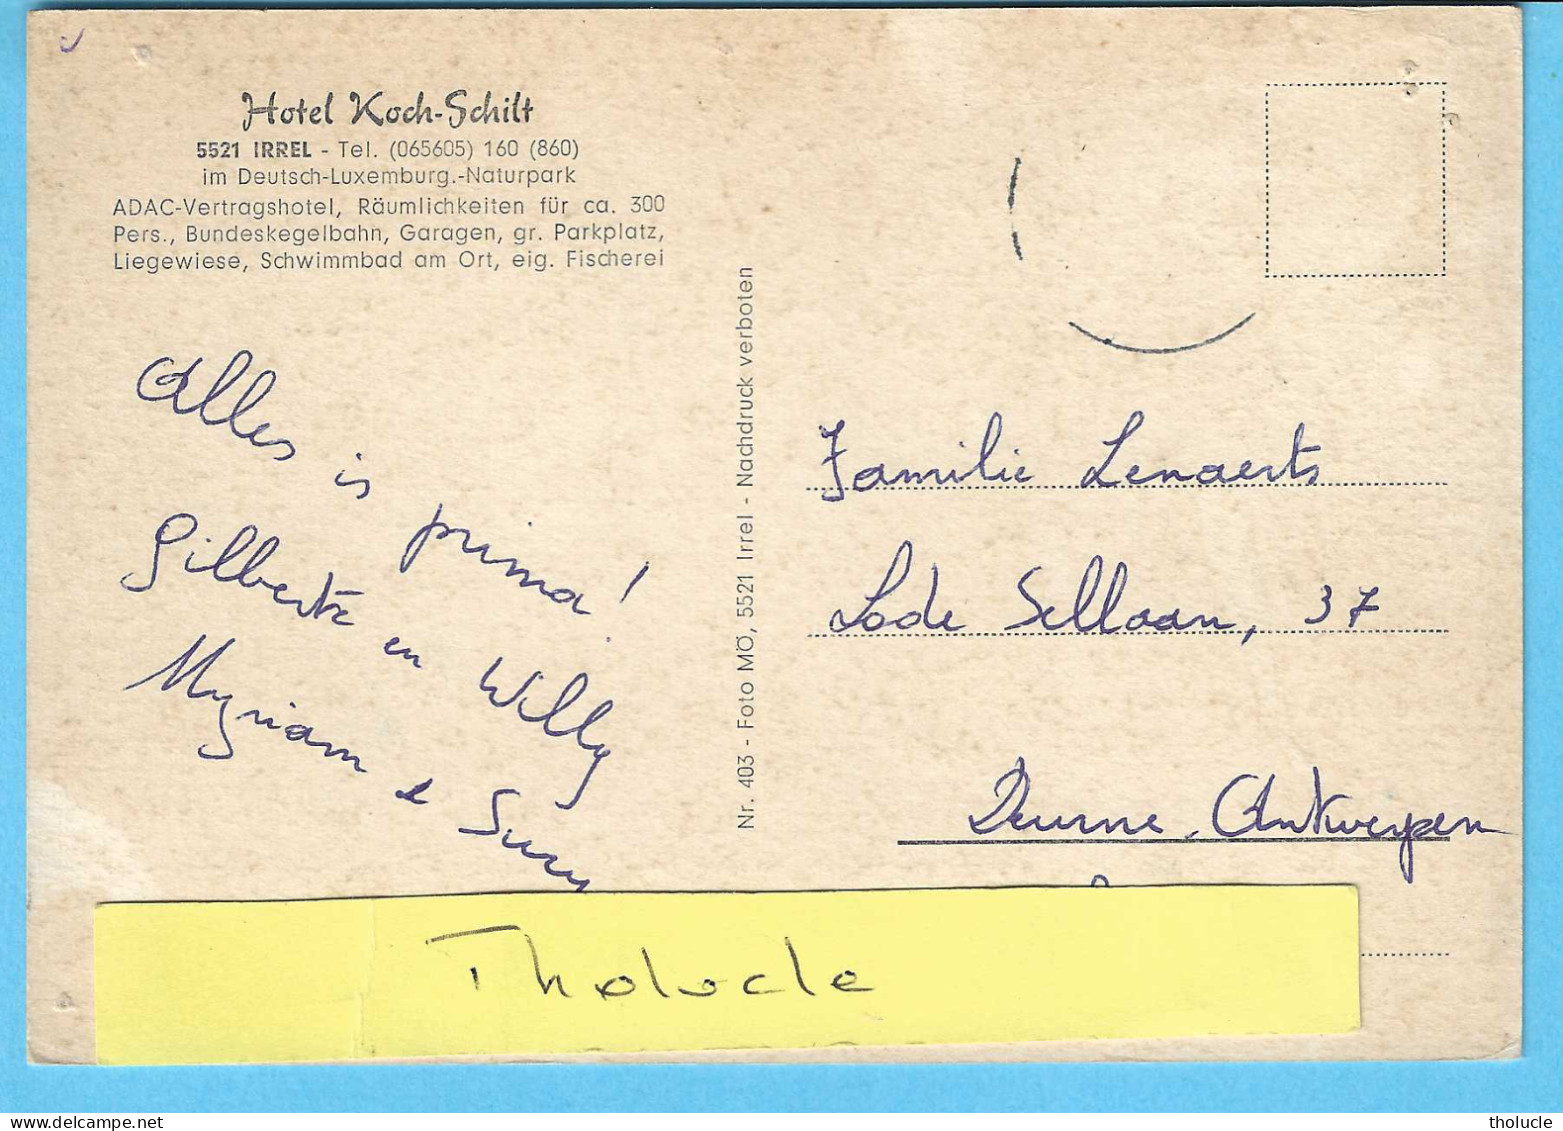 Hotel Koch-Schilt
5521 IRREL - Tel. (065605) 160 (860)
im Deutsch-Luxemburg.-Naturpark
ADAC-Vertragshotel, Räumlichkeiten für ca. 300
Pers., Bundeskegelbahn, Garagen, gr. Parkplatz,
Liegewiese, Schwimmbad am Ort, eig. Fischerei
Alles is prima!
Gilberte en Willy
Myriam &
Nr. 403 - Foto MÖ, 5521 Irrel - Nachdruck verboten
Familie Lenaerts
Lode Sellaan, 37
Deurne - Antwerpen
Tholocle
www.delcampe.net
tholucle